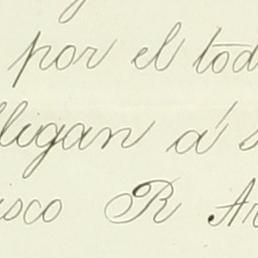 por el tod
lligan á s
isco R Ar